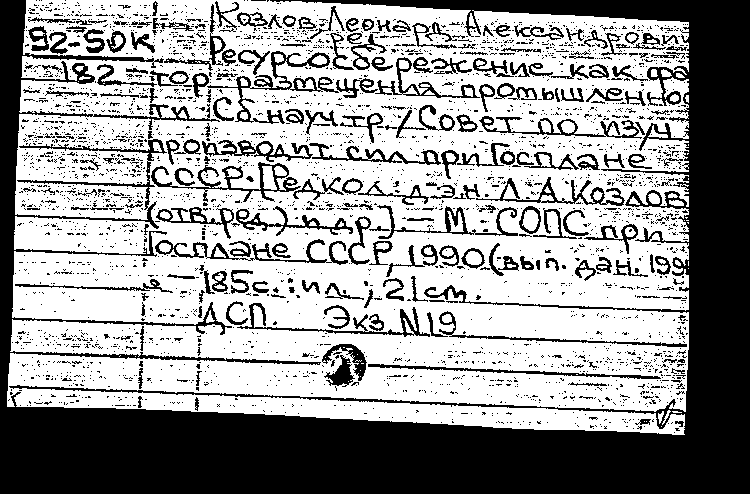 Козлов, Леонард Александрович
ред.
92-5DK
182
Ресурсосбережение как фа-
тор размещения промышленнос
ти Сб. науч. тр. / Совет по изуч
производит. сил при Госплане
СССР; [Редкол.: д.э.н. Л. А. Козлов
(отв. ред.) и др.]. — М.: СОПС при
Госплане СССР, 1990 (вып. дан. 199
— 185с. : ил. ; 21 cm.
ДСП. Экз. N19.